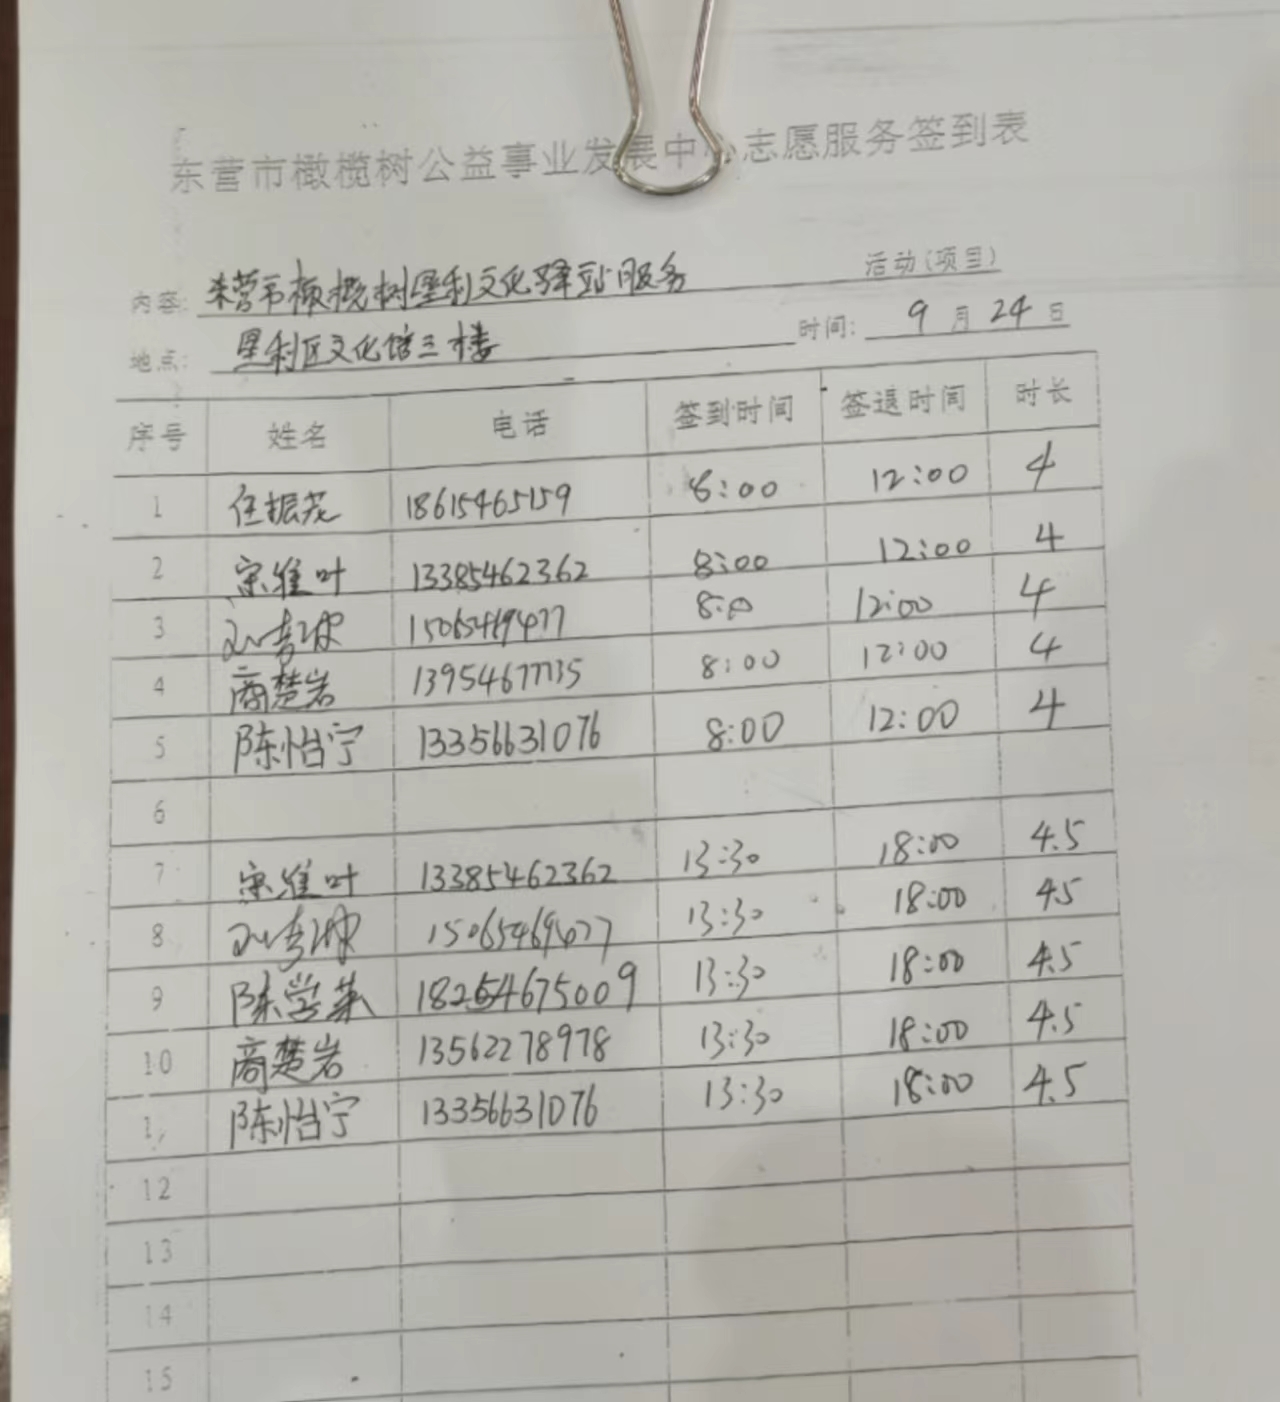 东营市橄榄树公益事业发展中心志愿服务签到表
内容: 东营市橄榄树垦利文化驿站服务 活动(项目)
地点: 垦利区文化馆三楼 时间: 9月24日
序号 姓名 电话 签到时间 签退时间 时长
1 任振茂 18615465159 8:00 12:00 4
2 宋维叶 13385462362 8:00 12:00 4
3 15065469477 8:00 12:00 4
4 商楚岩 13954677735 8:00 12:00 4
5 陈怡宁 13356631076 8:00 12:00 4
6
7 宋维叶 13385462362 13:30 18:00 4.5
8 15065469477 13:30 18:00 4.5
9 陈学英 18254675009 13:30 18:00 4.5
10 商楚岩 13562278978 13:30 18:00 4.5
陈怡宁 13356631076 13:30 18:00 4.5
12
13
14
15